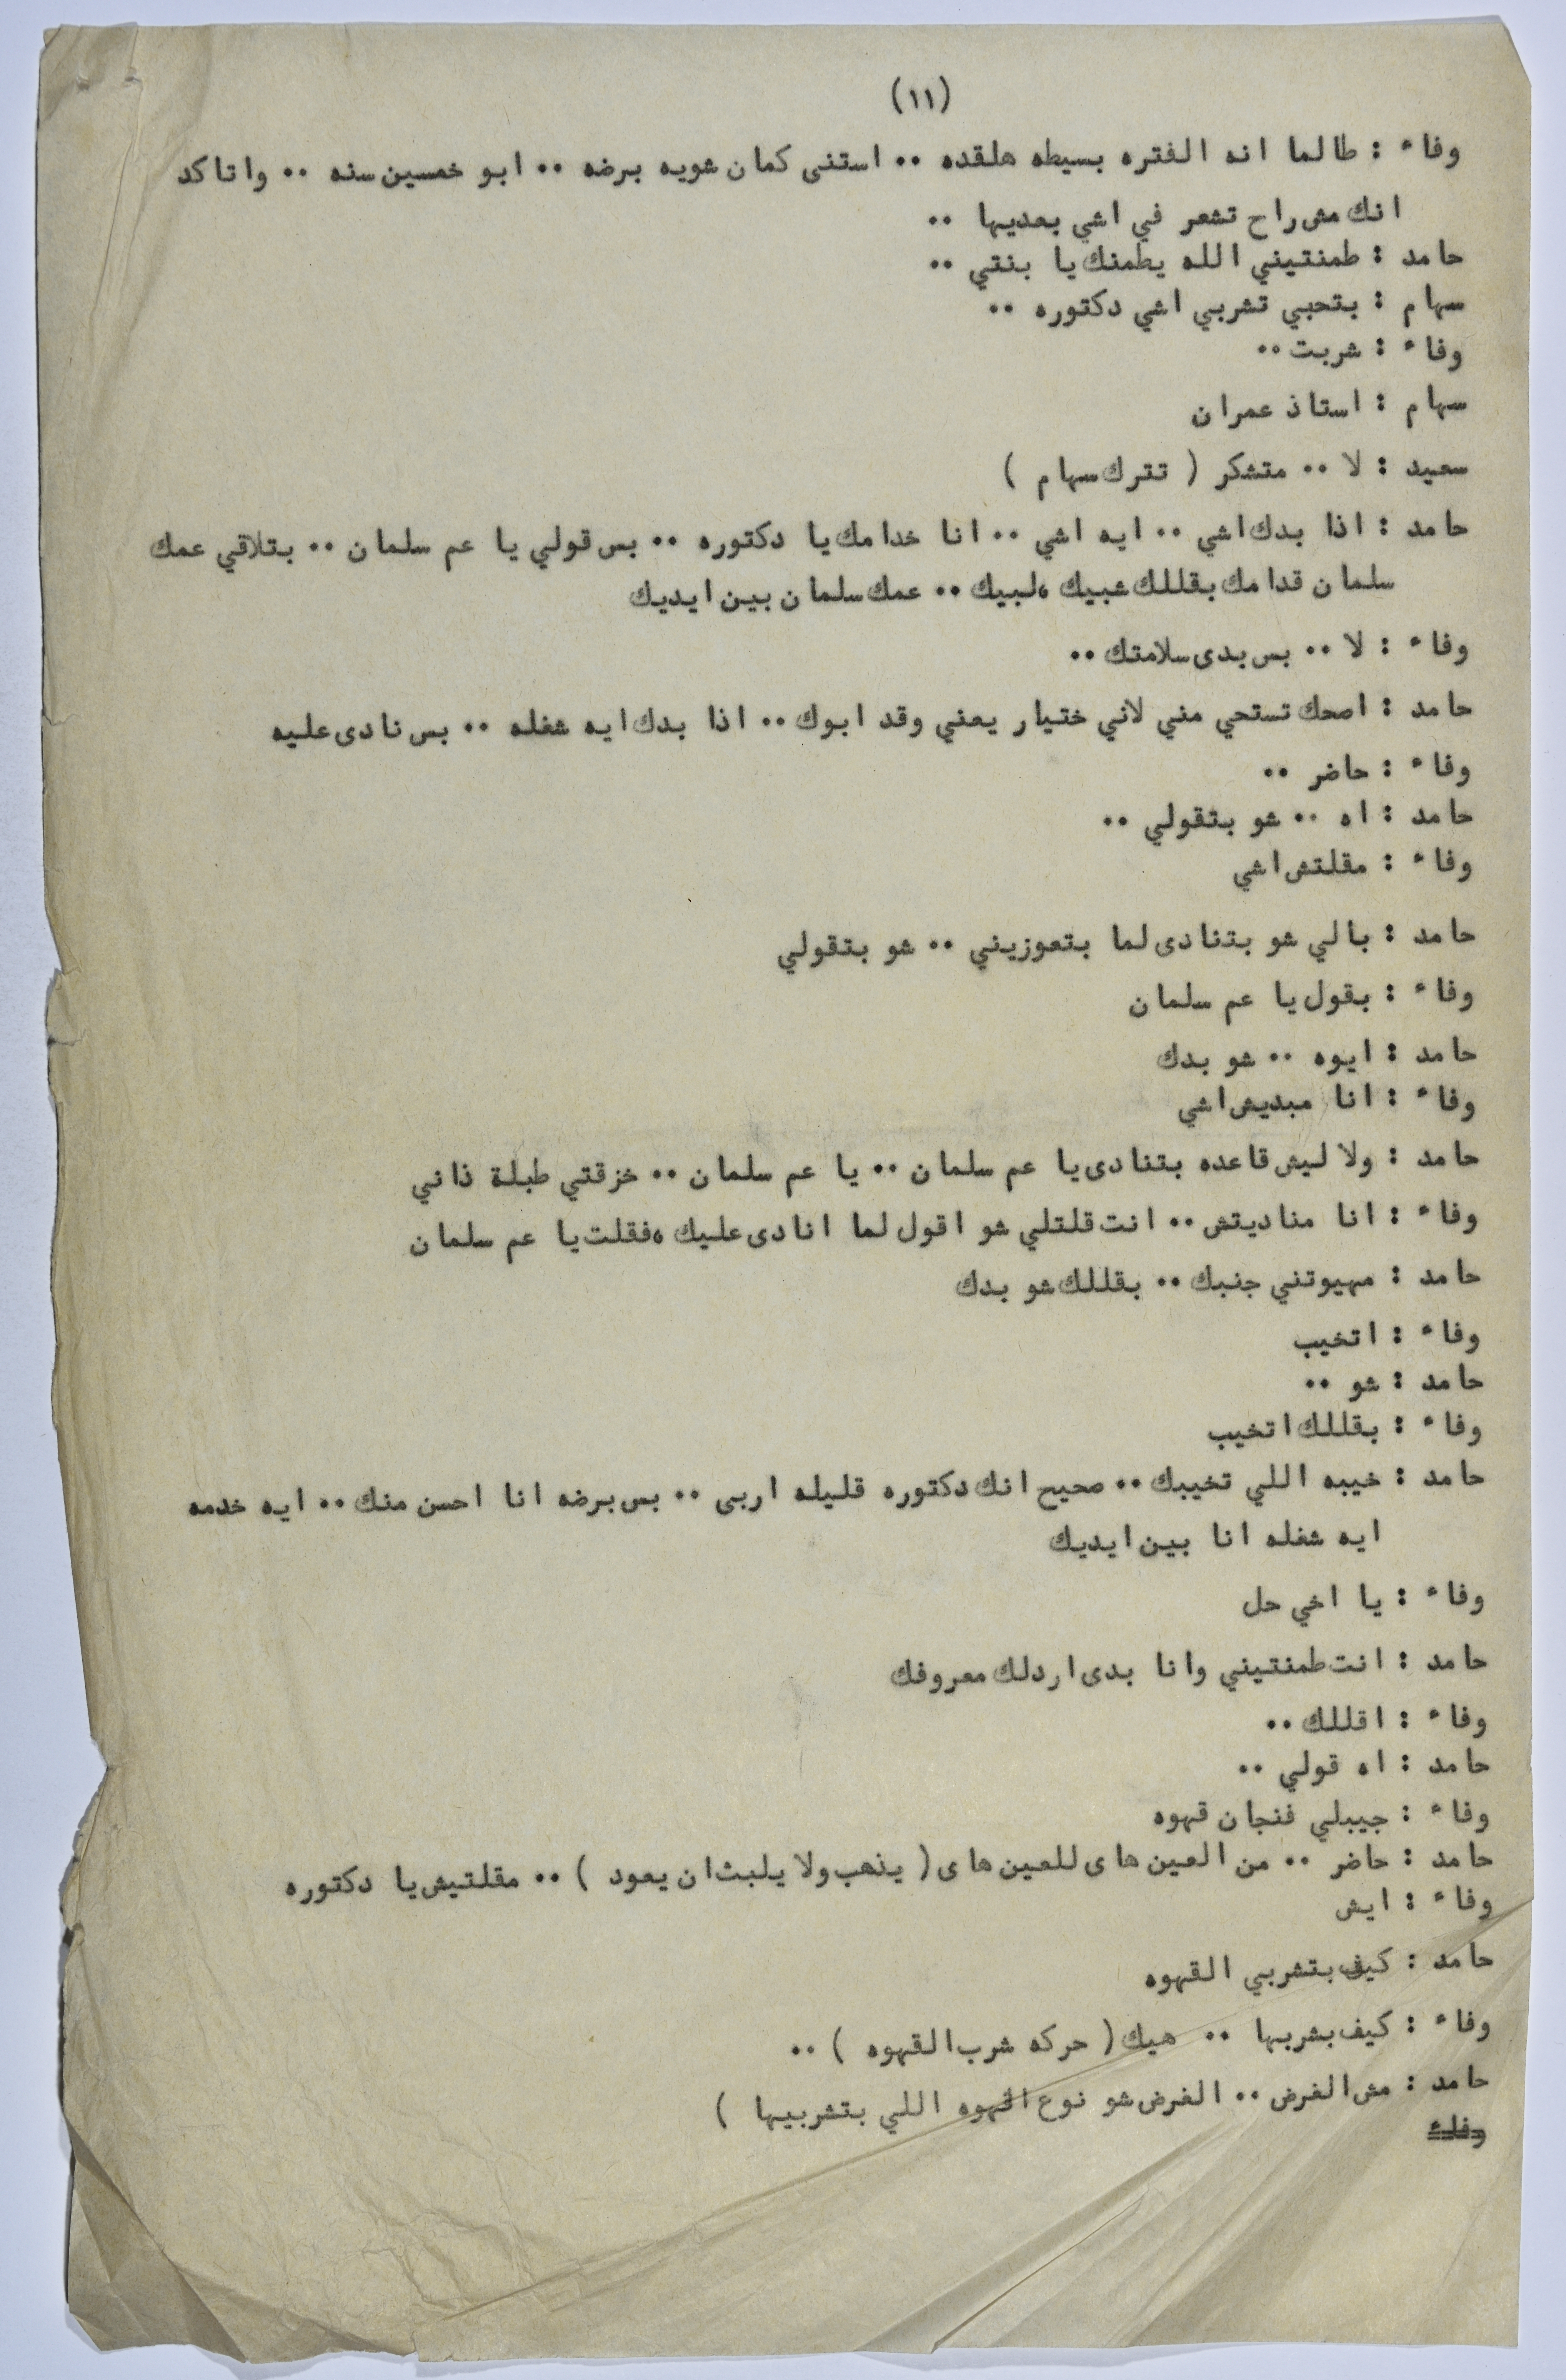 (١١)
وفاء : طالما انه الفتره بسيطه هلقده .. استنى كمان شويه برضه .. ابو خمسين سنه .. واتاكد
انك مش راح تشعر في اشي بعديها ..
حامد : طمنتيني الله يطمنك يا بنتي ..
سهام : بتحبي تشربي اشي دكتوره ..
وفاء : شربت ..
سهام : استاذ عمران
سعيد : لا .. متشكر ( تترك سهام )
حامد : اذا بدك اشي .. ايه اشي .. انا خدامك يا دكتوره .. بس قولي يا عم سلمان .. بتلاقي عمك
سلمان قدامك بقللك شبيك ،لبيك .. عمك سلمان بين ايديك
وفاء : لا .. بس بدى سلامتك ..
حامد : اصحك تستحي مني لاني ختيار يعني وقد ابوك .. اذا بدك ايه شغله .. بس نادى عليه
وفاء : حاضر ..
حامد : اه .. شو بتقولي ..
وفاء : مقلتش اشي
حامد : بالي شو بتنادى لما بتعوزيني .. شو بتقولي
وفاء : بقول يا عم سلمان
حامد : ايوه .. شو بدك
وفاء : انا مبديش اشي
حامد : ولا ليش قاعده بتنادى يا عم سلمان .. يا عم سلمان .. خزقتي طبلة ذاني
وفاء : انا مناديتش .. انت قلتلي شو اقول لما انادى عليك ،فقلت يا عم سلمان
حامد : مهيوتني جنبك .. بقللك شو بدك
وفاء : اتخيب
حامد : شو ..
وفاء : بقللك اتخيب
حامد : خيبه اللي تخيبك .. صحيح انك دكتوره قليله اربى .. بس برضه انا احسن منك .. ايه خدمه
ايه شغله انا بين ايديك
وفاء : يا اخي حل
حامد : انت طمنتيني وانا بدى اردلك معروفك
وفاء : اقللك ..
حامد : اه قولي ..
وفاء : جيبلي فنجان قهوه
حامد : حاضر .. من العين هاى للعين هاى ( يذهب ولا يلبث ان يعود ) .. مقلتيش يا دكتوره
وفاء : ايش
حامد : كيف بتشربي القهوه
وفاء : كيف بشربها .. هيك ( حركه شرب القهوه ) ..
حامد : مش الغرض .. الغرض شو نوع القهوه اللي بتشربيها )
وفاء